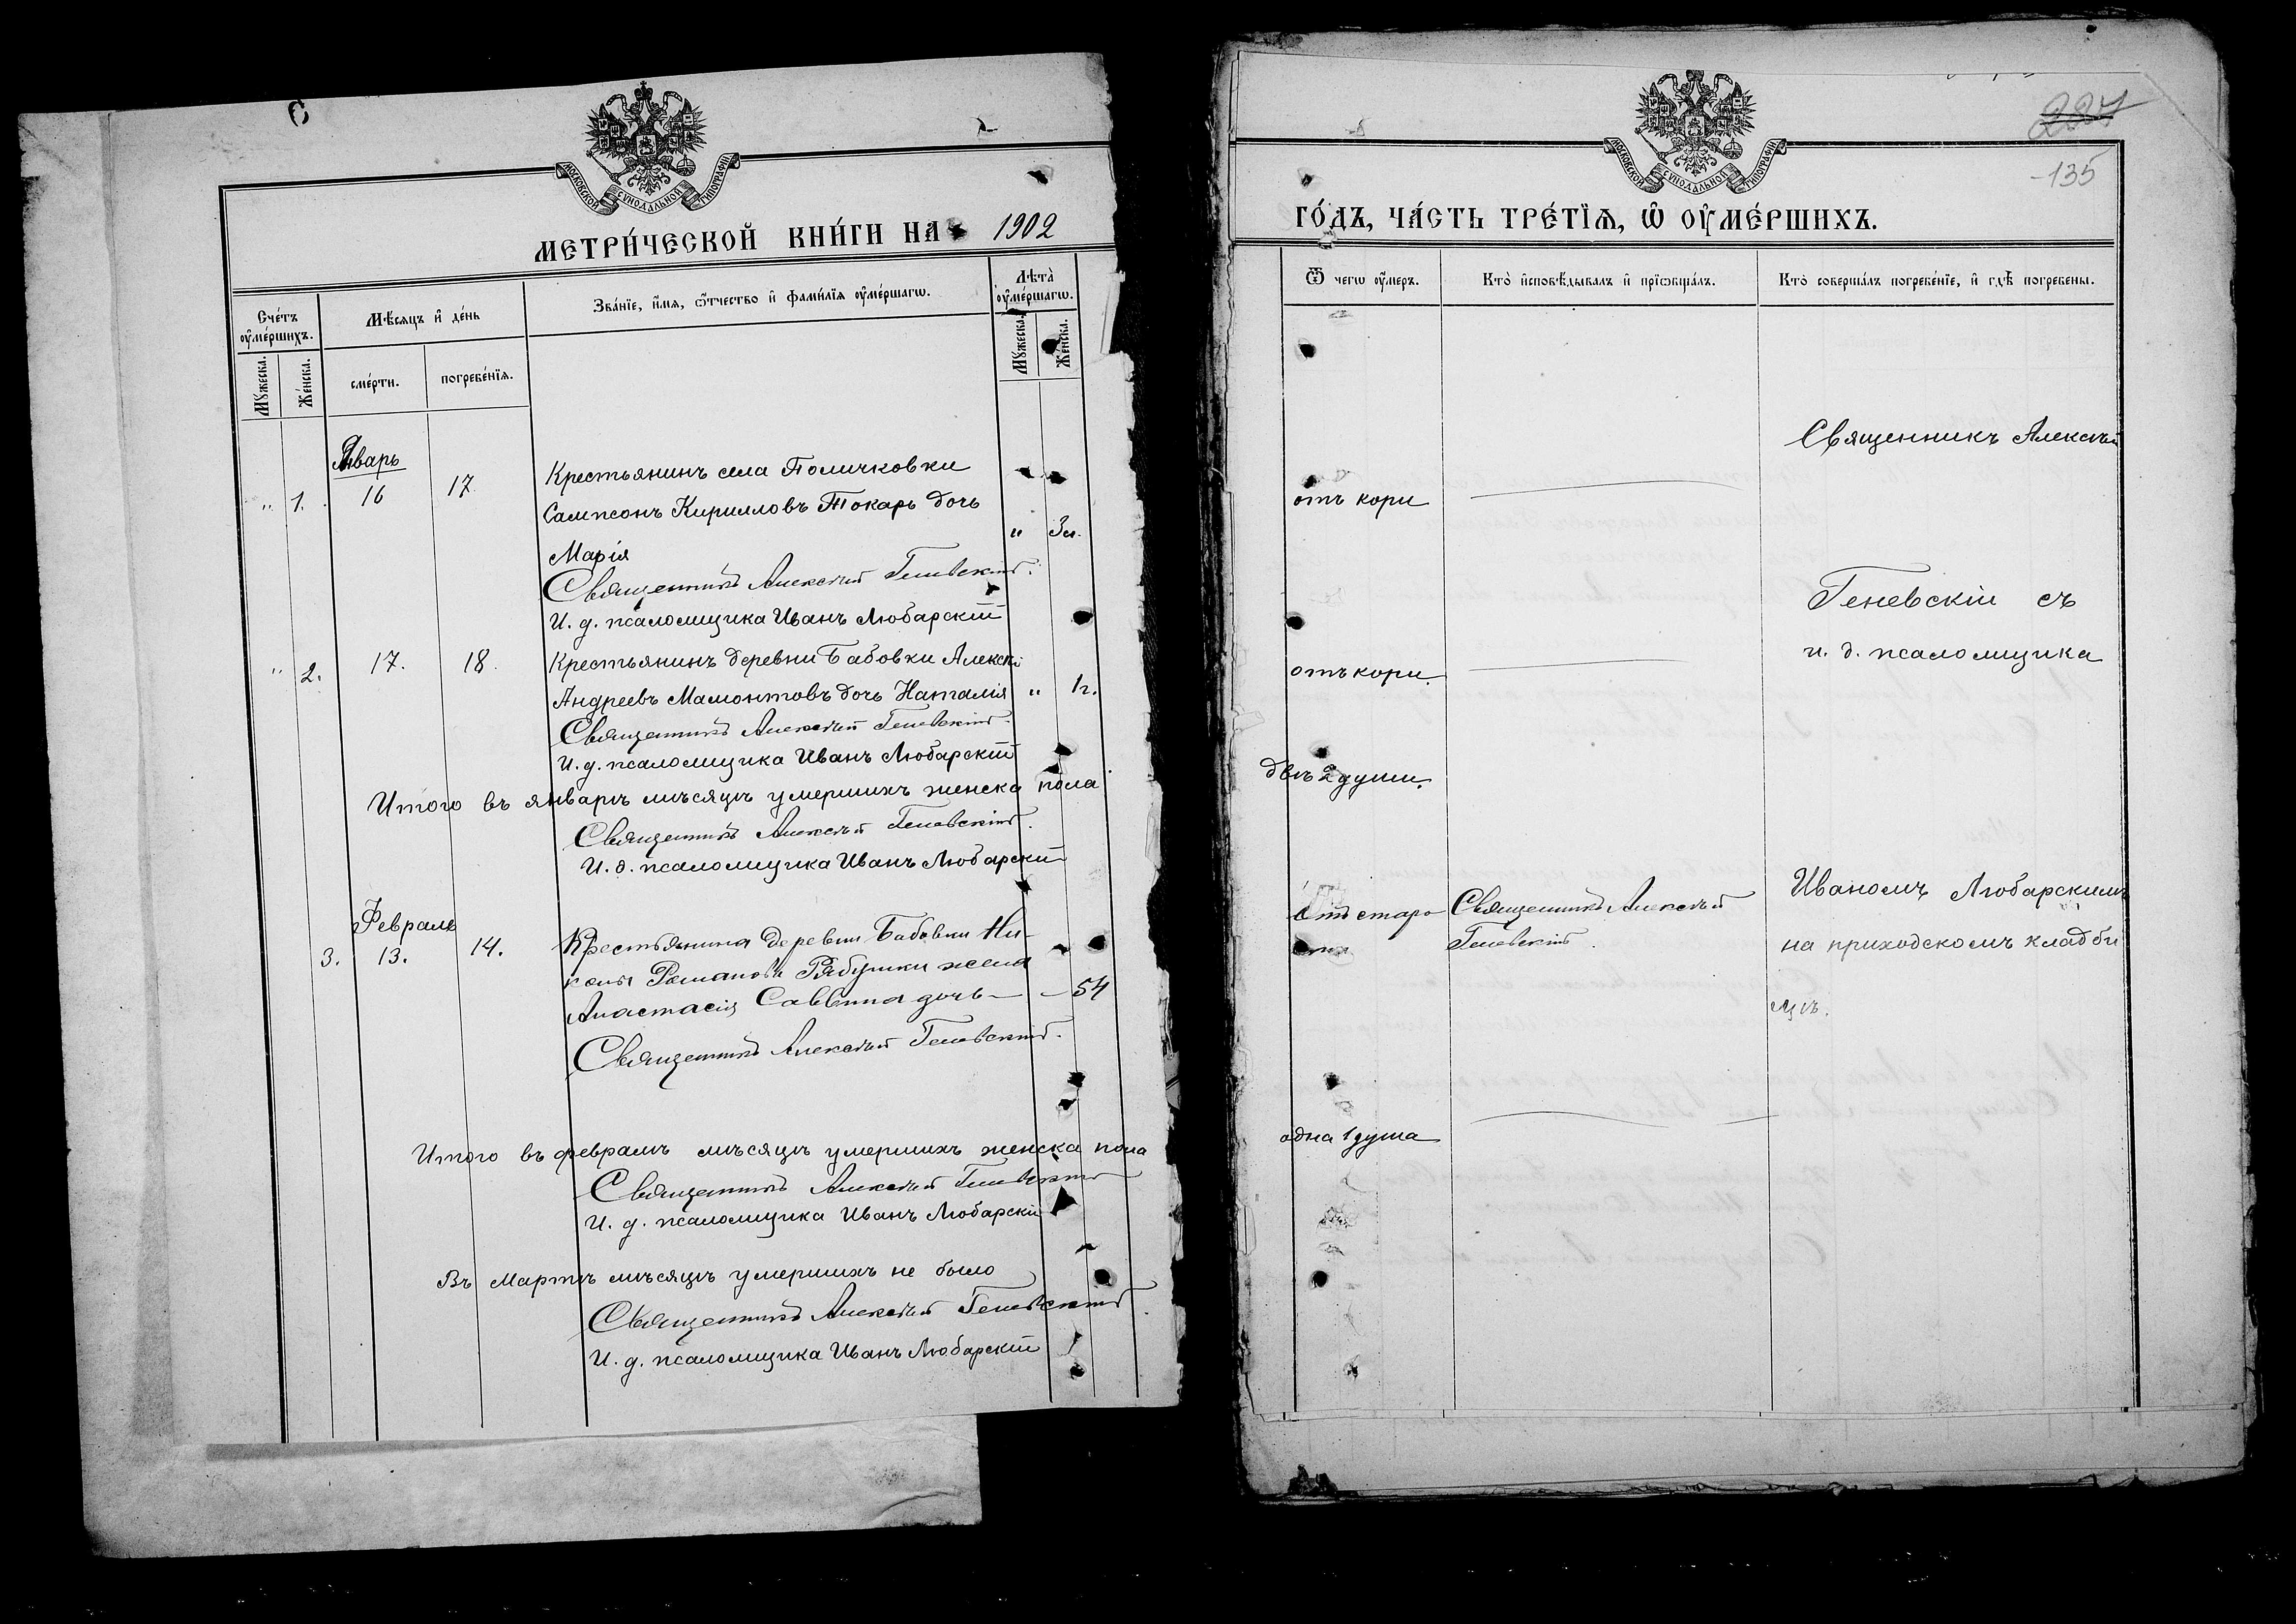 МОСКОВСКОЙ СѴНОДАЛЬНОЙ ТИПОГРАФІИ
МЕТРИ́ЧЕСКОЙ КНИ́ГИ НА 1902
Сче́тъ ᲂу҆ме́ршихъ.
Мѹ́жеска.
Же́нска.
Мѣ́сяцъ и҆ де́нь
сме́рти.
погребе́нїѧ.
Зва́нїе, и҆́мѧ, ѻ҆́тчество и҆ фами́лїѧ ᲂу҆ме́ршагѡ.
Лѣта̀ ᲂу҆ме́ршагѡ.
Мѹ́жеска.
Же́нска.
Январь
" 1. 16 17. Крестьянинъ села Поличковки
Сампсонъ Кирилловъ Токарь дочь
" 3м.
Марія
Священникъ Алексѣй Геневскій.
И. д. псаломщика Иванъ Любарскій
" 2. 17. 18. Крестьянинъ деревни Бабовки Алексѣ
Андреевъ Мамонтовъ дочь Наталія " 1г.
Священникъ Алексѣй Геневскій.
И. д. псаломщика Иванъ Любарскій
Итого въ январѣ мѣсяцѣ умершихъ женска пола
Священникъ Алексѣй Геневскій.
И. д. псаломщика Иванъ Любарскій
Февраль
3. 13. 14. Крестьянина деревни Бабовки Ни-
Романова Рябушки жена
Анастасія Саввина дочь — — 54
Священникъ Алексѣй Геневскій.
Итого въ февралѣ мѣсяцѣ умершихъ женска пола
Священникъ Алексѣй Геневскій
И. д. псаломщика Иванъ Любарскій
Въ Мартѣ мѣсяцѣ умершихъ не было
Священникъ Алексѣй Геневскій.
И. д. псаломщика Иванъ Любарскій
227
135
МОСКОВСКОЙ СѴНОДАЛЬНОЙ ТИПОГРАФІИ
ГО́ДЪ, ЧА́СТЬ ТРЕ́ТЇѦ, Ѡ҆ ОУ҆МЕ́РШИХЪ.
Ѿ чегѡ ᲂу҆́меръ.
Кто̀ и҆сповѣ́дывалъ и҆ прїѡбща́лъ.
Кто̀ соверша́лъ погребе́нїе, и҆ гдѣ̀ погребены.
Священникъ Алексѣй
отъ кори
Геневскій съ
и. д. псаломщика
отъ кори.
двѣ 2 души.
Иваномъ Любарскимъ
Отъ старо- Священникъ Алексѣй
Геневскій.
на приходскомъ кладби
щѣ.
одна 1 душа